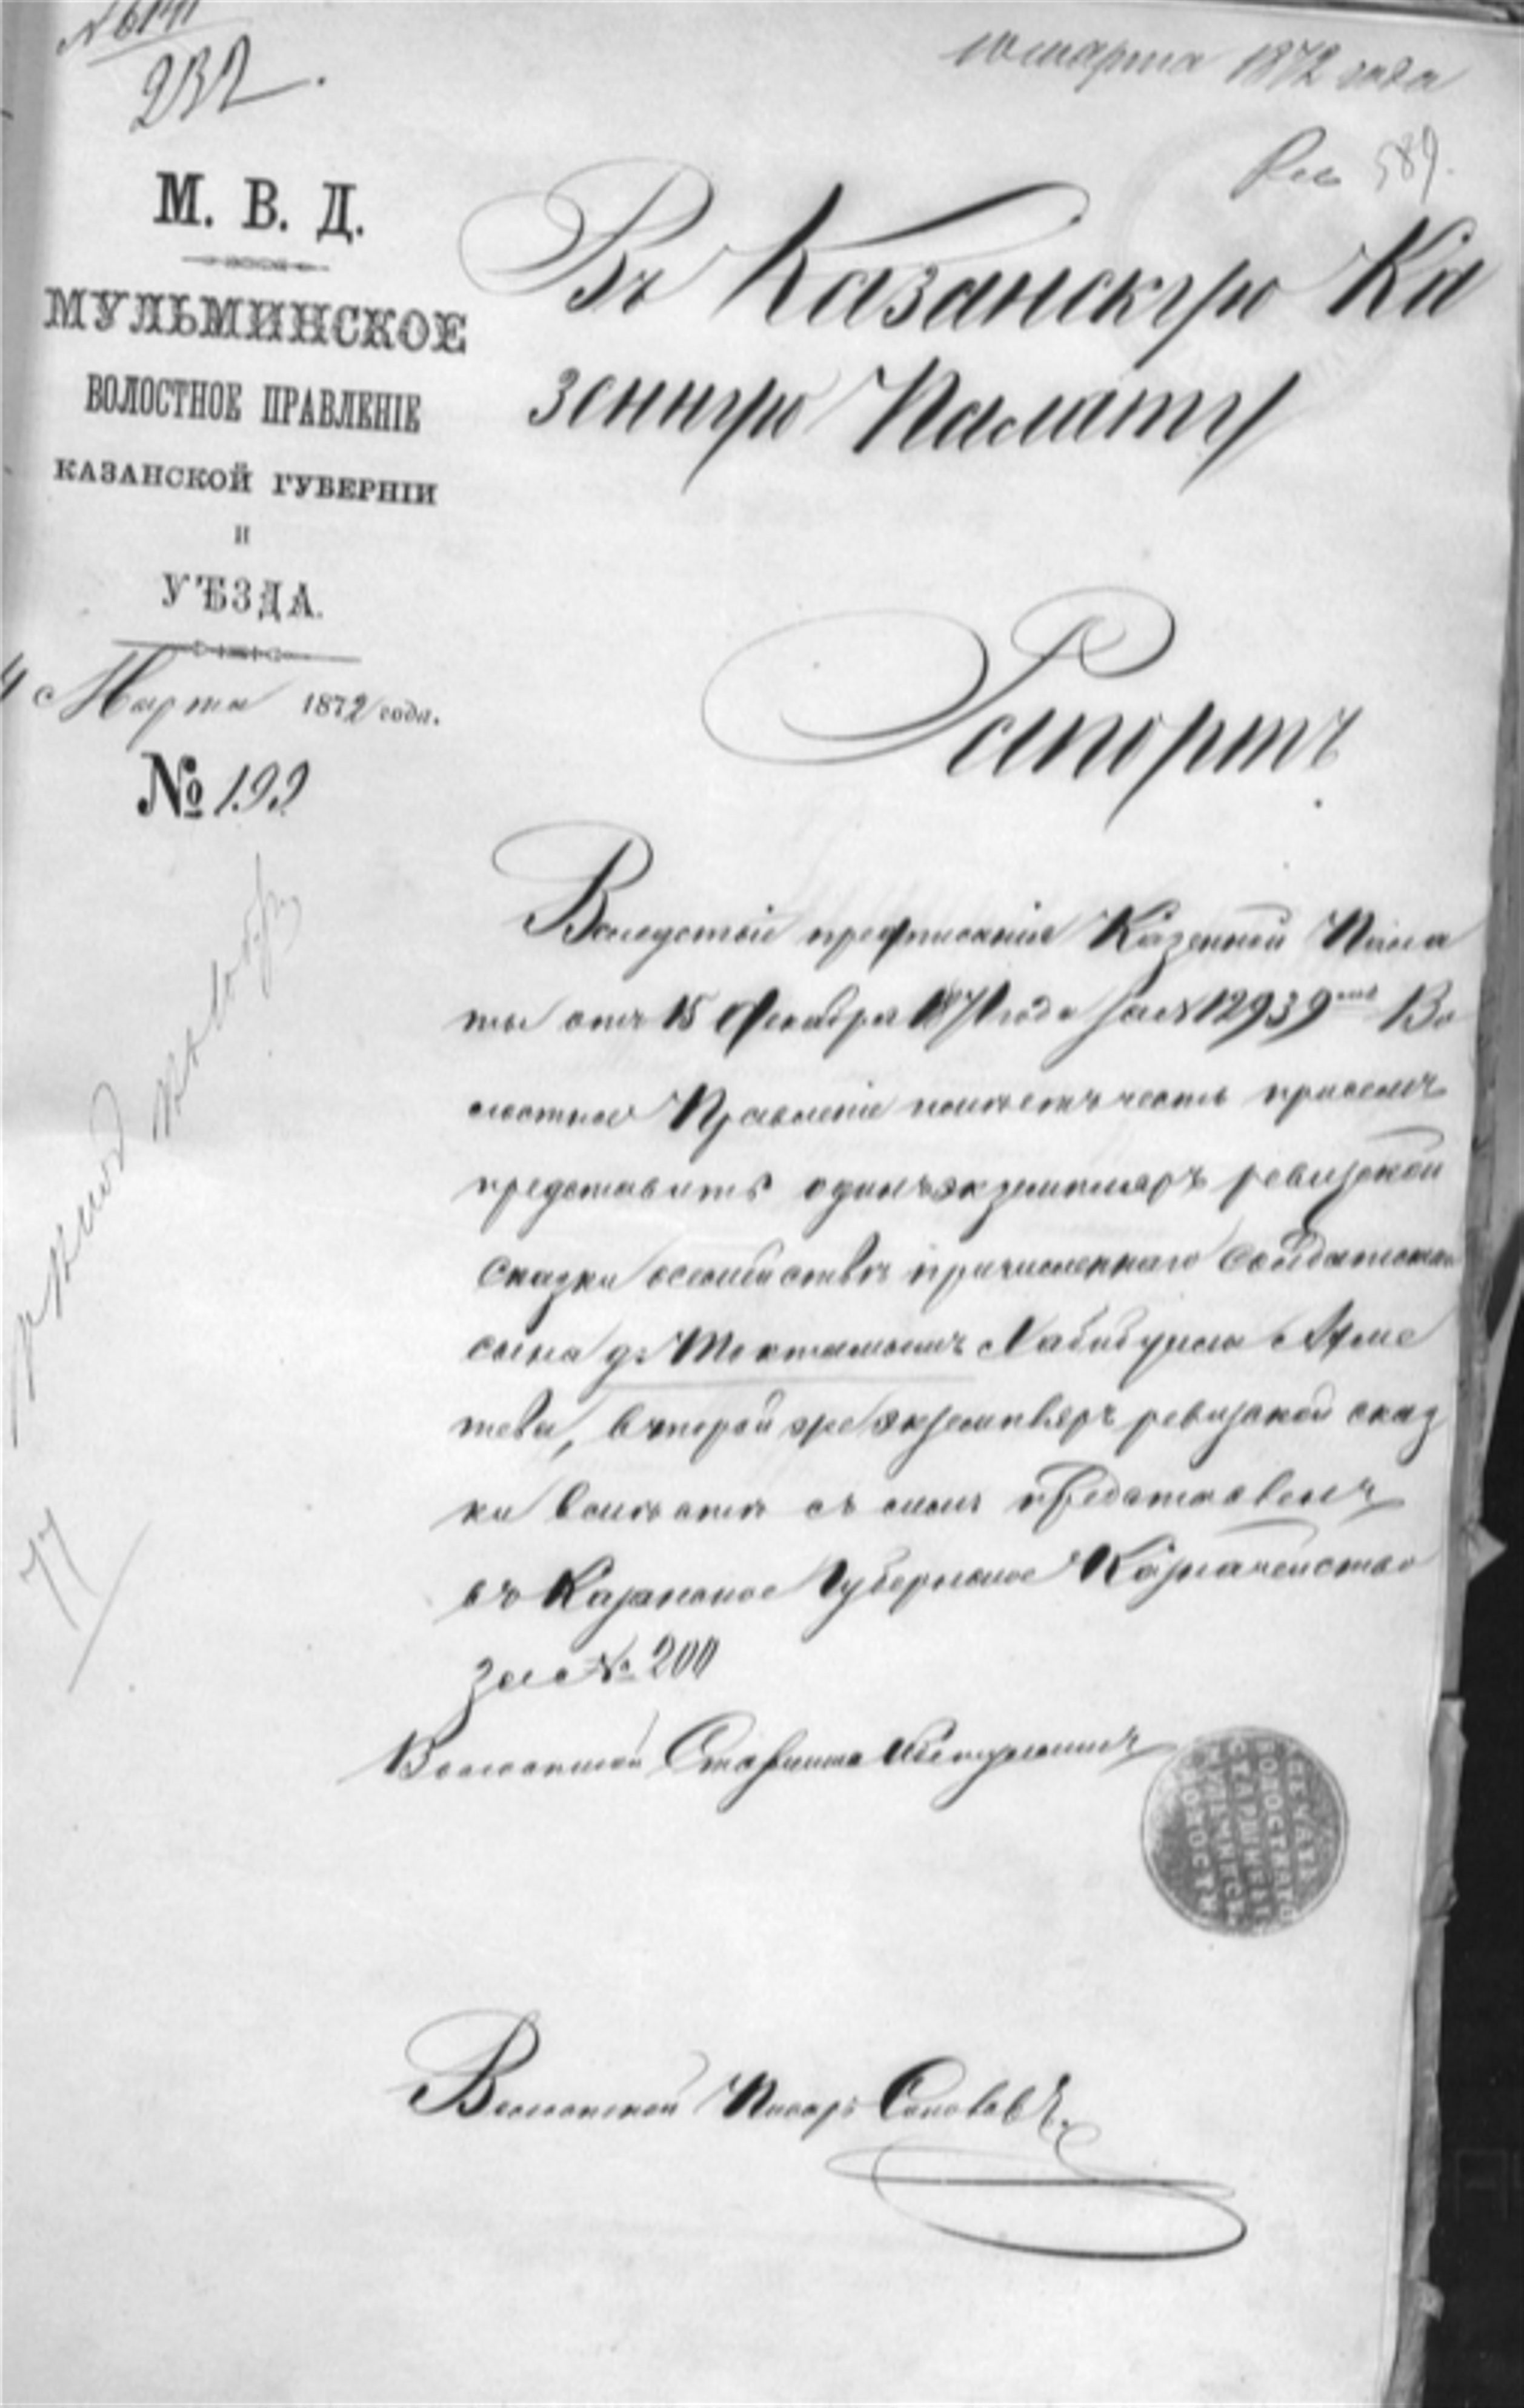 232.
10 марта 1872 года
М. В. Д.
МУЛЬМИНСКОЕ
ВОЛОСТНОЕ ПРАВЛЕНІЕ
КАЗАНСКОЙ ГУБЕРНІИ
и
УѢЗДА.
4 Марта 1872 года.
№ 199
Въ Казанскую Ка
зенную Палату
Рапортъ
Вследствіе предписанія Казенной Пала
ты отъ 15 Декабря 1871 года за № 12939 Во
лостное Правленіе имѣетъ честь при семъ
представить одинъ экземпляръ ревизской
сказки о семействѣ причисленнаго солдатскаго
сына д. Хабибуллы Ахме
тева, второй же экземпляръ ревизской сказ
ки вместѣ съ симъ представленъ
въ Казанское Губернское Казначейство
за № 200
Волостной Старшина
ПЕЧАТЬ
ВОЛОСТНАГО
СТАРШИНЫ
МУЛЬМИНСК.
ВОЛОСТИ
Волостной Писарь